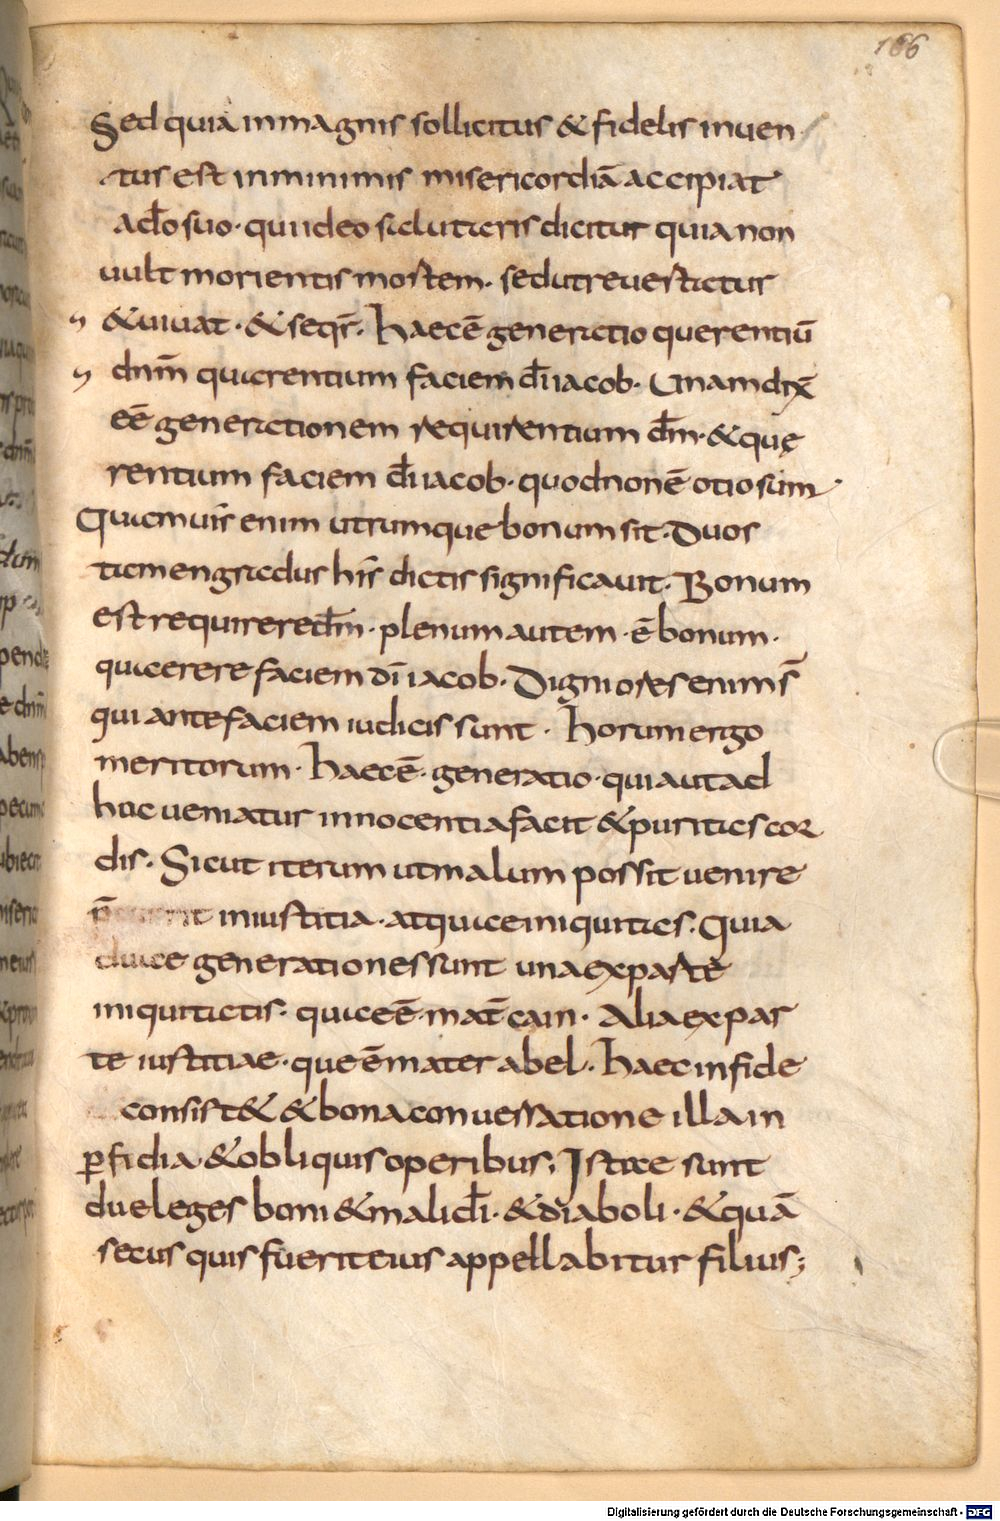 166
Sed quia in magnis sollicitus & fidelis inuen
tus est in minimis misericordiā accipiat
ad̄o suo · qui ideo salutaris dicitur quia non
uult morientis mortem · sed ut reuertatur
& uiuat · & seqr̄ · Haec ē generatio querentiū
dn̄m quaerentium faciem dī iacob · Unam dix̄
eē generationem requirentium dm̄ · & que
rentium faciem dī iacob · quod non ē otiosum
Quamuis enim utrumque bonum sit · Duos
tamen gradus his dictis significauit · Bonum
est requirere dm̄ · plenum autem ē bonum ·
quaerere faciem dī iacob · Digniores enim s̄
qui ante faciem iudicis sunt · horum ergo
meritorum · haec ē · generatio · qui aut ad
hoc ueniatur innocentia facit & puritas cor
dis · Sicut iterum ut malum possit uenire
iniustitia · atquae iniquitas · Quia
duae generationes sunt una ex parte
iniquitatis · quae ē mat̄ cain · Alia ex par
te iustitiae · que ē mater abel · Haec in fide
consist& & bona conuersatione illa in
ꝑfidia & obliquis operibus; Istae sunt
due leges boni & mali dī · & diaboli · & quā
secus quis fuerit eius appellabitur filius;
Digitalisierung gefördert durch die Deutsche Forschungsgemeinschaft - DFG